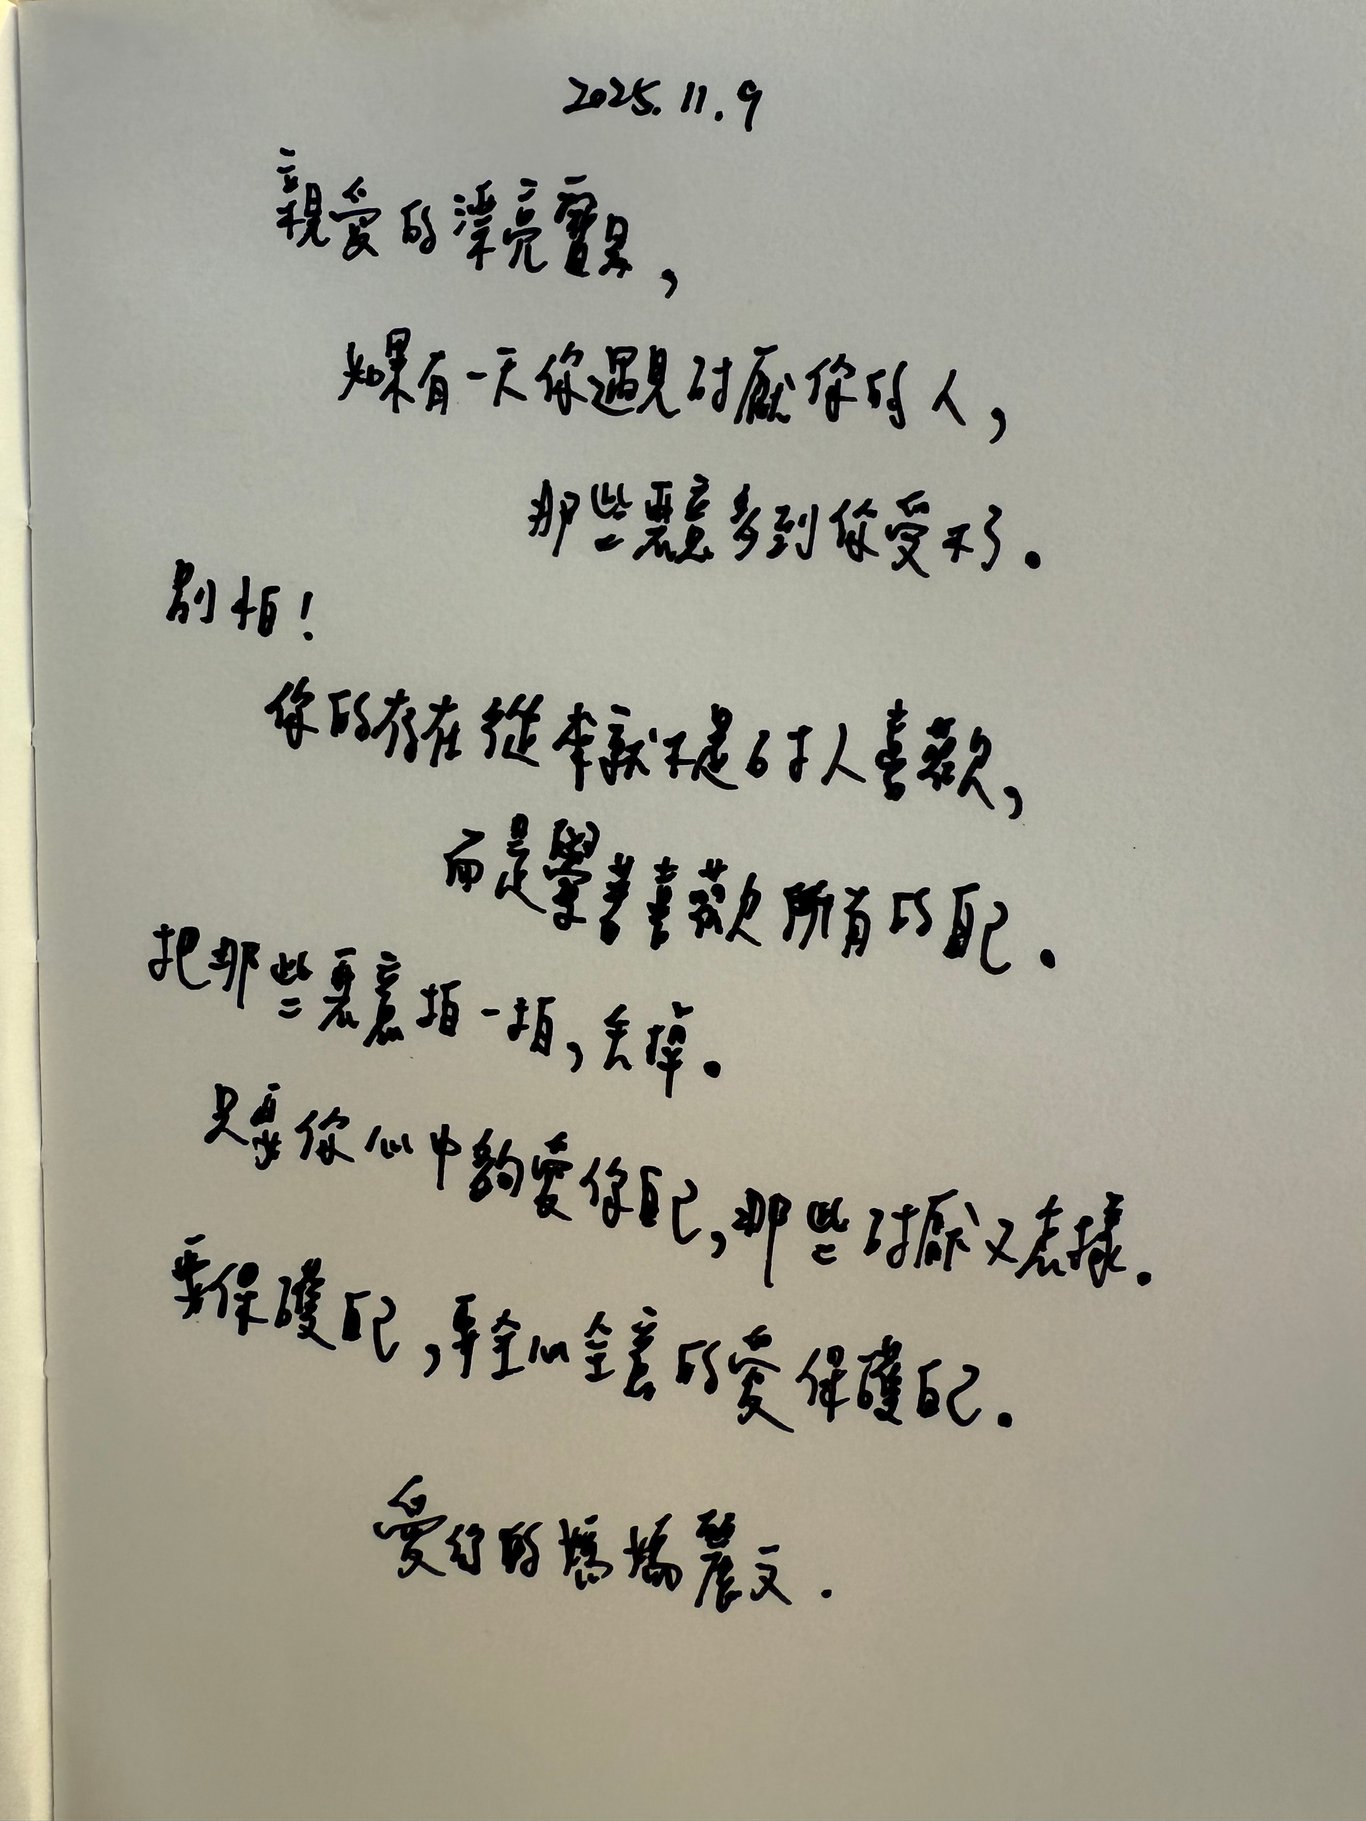 2025.11.9
親愛的漂亮寶貝,
如果有一天你遇見討厭你的人,
那些惡意多到你受不了.
別怕!
你的存在從來就不是討人喜歡,
而是學著喜歡所有的自己.
把那些惡意拍一拍,丟掉.
只要你心中夠愛你自己,那些討厭又怎樣.
要保護自己,要全心全意的愛保護自己.
愛你的媽媽麗文.